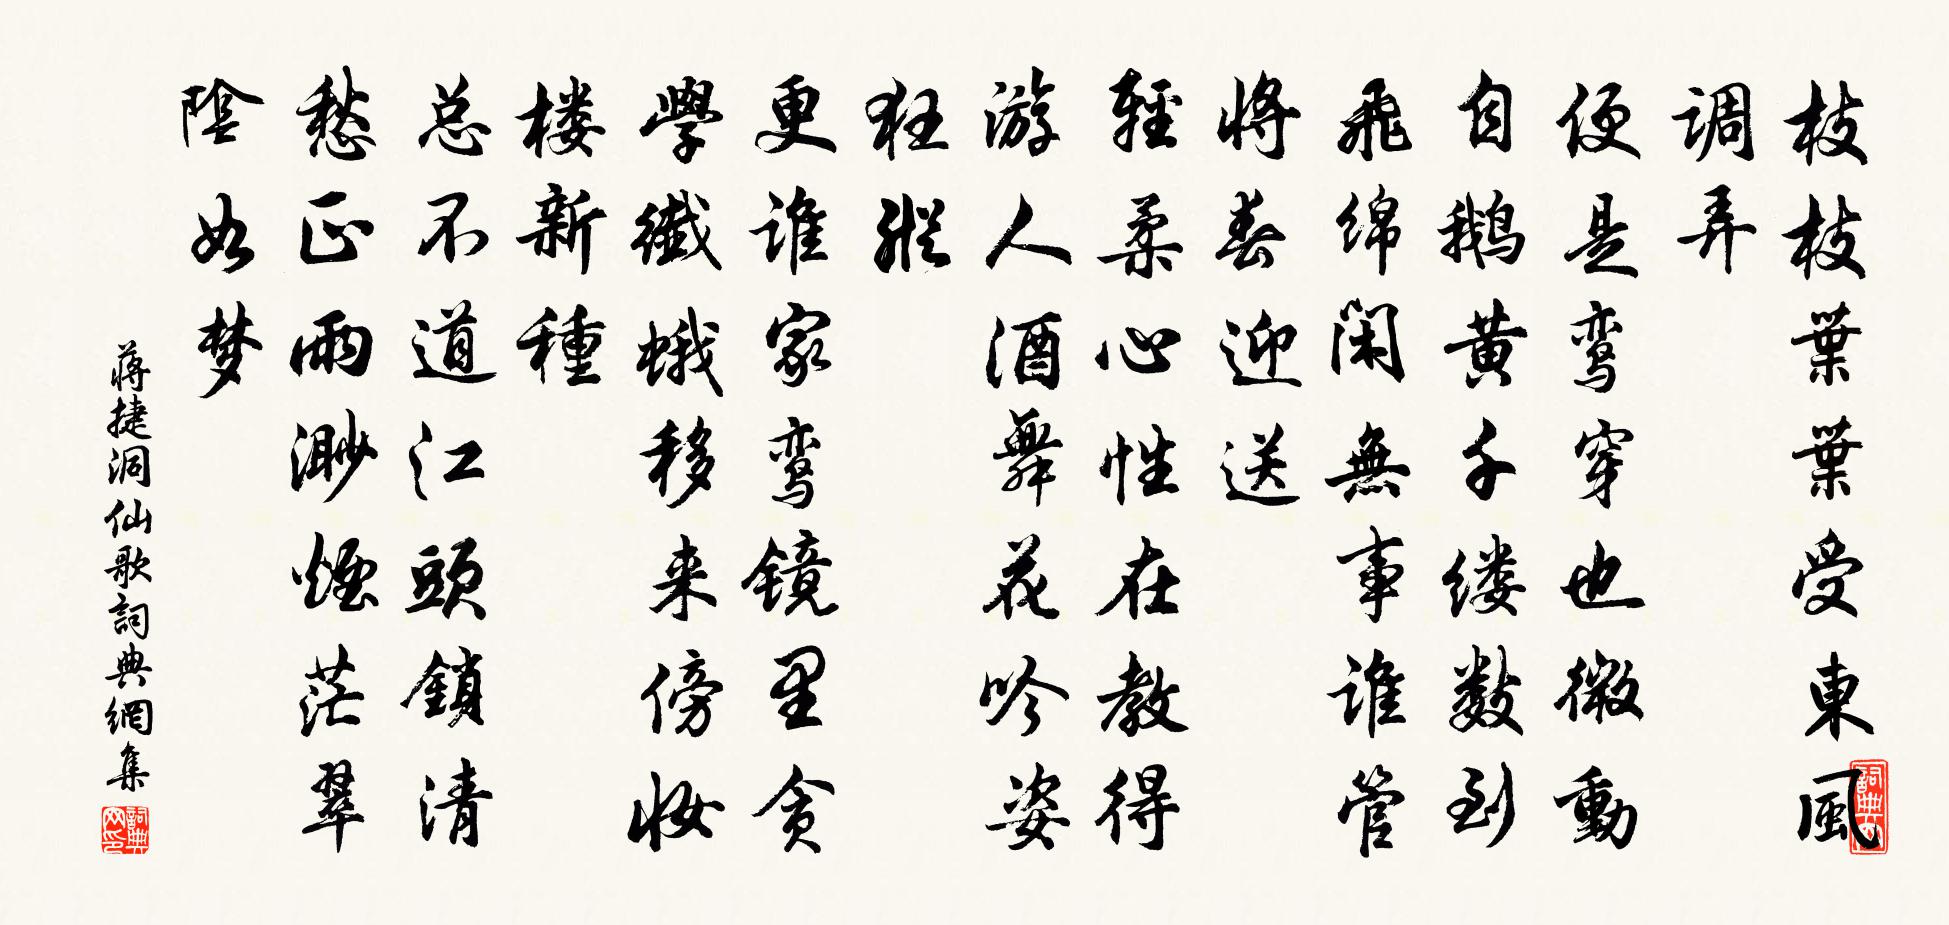 枝枝葉葉受東風
调弄
便是鸾穿也微動
自鹅黄千缕数到
飛绵闲無事谁管
将春迎送
輕柔心性在教得
游人酒舞花吟姿
狂縱
更谁家鸾镜里贪
學纖蛾移来傍妆
楼新種
总不道江頭鎖清
愁正雨渺煙茫翠
陰如梦
蒋捷洞仙歌詞典網集
詞典网印